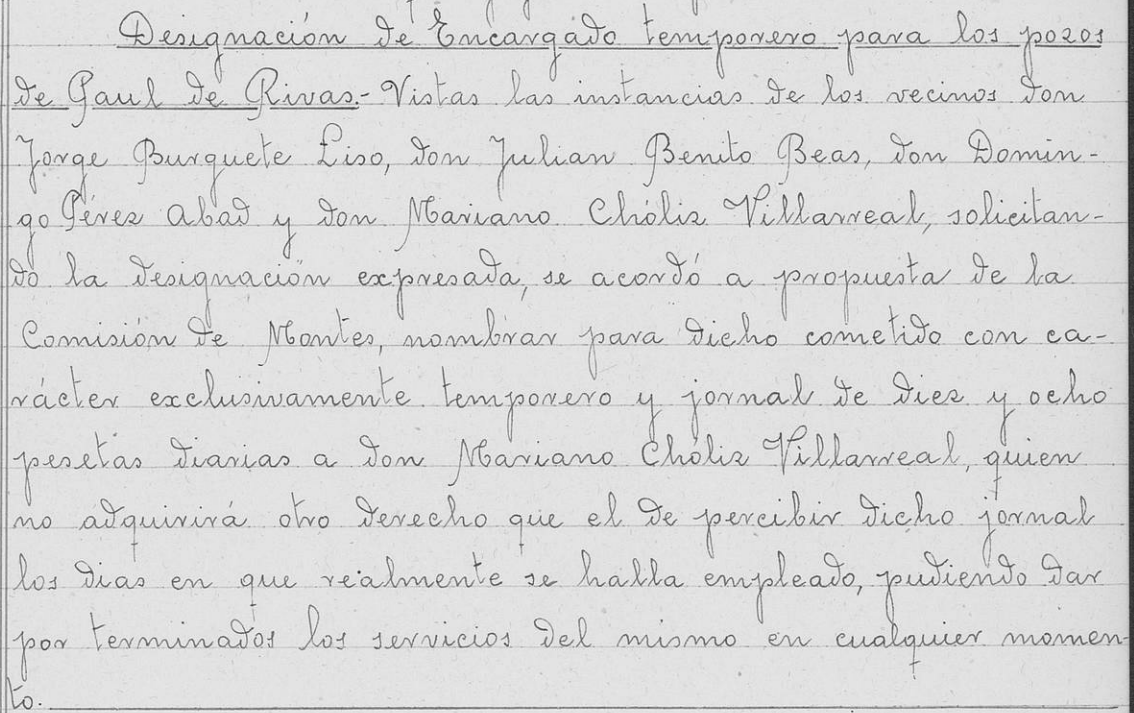 Designación de Encargado temporero para los pozos
de Paul de Rivas- Vistas las instancias de los vecinos don
Jorge Burguete Liso, don Julian Benito Beas, don Domin-
go Pérez Abad y don Mariano Chóliz Villarreal, solicitan-
do la designación expresada, se acordó a propuesta de la
Comisión de Montes, nombrar para dicho cometido con ca-
rácter exclusivamente temporero y jornal de diez y ocho
pesetas diarias a don Mariano Chóliz Villarreal, quien
no adquirirá otro derecho que el de percibir dicho jornal
los dias en que realmente se halla empleado, pudiendo dar
por terminados los servicios del mismo en cualquier momen-
to.